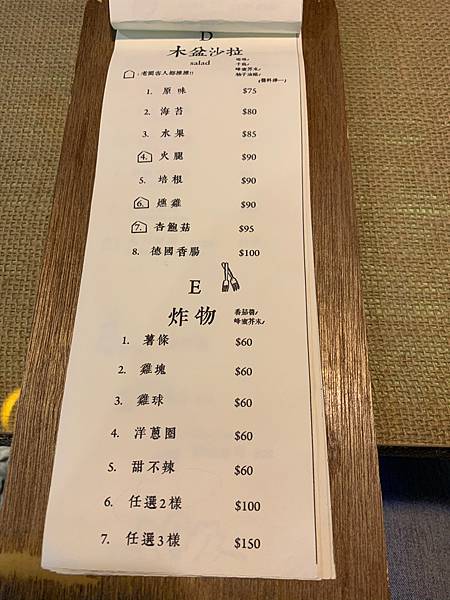 D
木盆沙拉
salad
蜂蜜芥末/
柚子油醋/
(醬料擇一)
:老闆客人都推推!!
1. 原味 $75
2. 海苔 $80
3. 水果 $85
4. 火腿 $90
5. 培根 $90
6. 燻雞 $90
7. 杏鮑菇 $95
8. 德國香腸 $100
E
炸物
番茄醬/
蜂蜜芥末/
1. 薯條 $60
2. 雞塊 $60
3. 雞球 $60
4. 洋蔥圈 $60
5. 甜不辣 $60
6. 任選2樣 $100
7. 任選3樣 $150